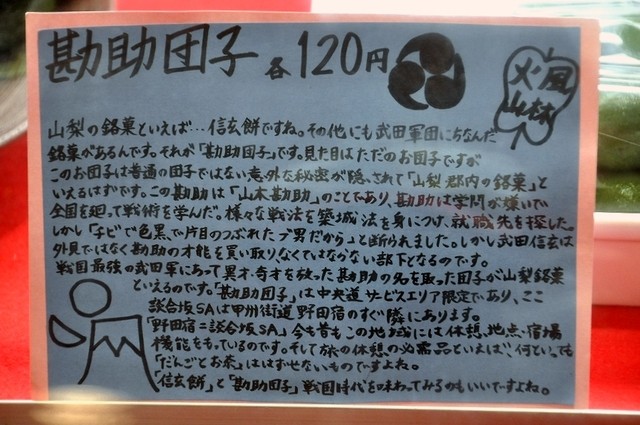 勘助団子 各120円
火風
山林
山梨の銘菓といえば…信玄餅ですね。その他にも武田軍団にちなんだ
銘菓があるんです。それが「勘助団子」です。見た目はただのお団子ですが
このお団子は普通の団子ではない意外な秘密が隠されて「山梨郡内の銘菓」と
いえるはずです。この勘助は「山本勘助」のことであり、勘助は学問が嫌いで
全国を廻って戦術を学んだ。様々な戦法を築城法を身につけ、就職先を探した。
しかし「チビで色黒、で片目のつぶれたブ男だから」と断られました。しかし武田信玄は
外見ではなく勘助の才能を買い取りなくてはならない部下となるのです。
戦国最強の武田軍にあって異才・奇才を放った勘助の名を取った団子が山梨銘菓
といえるのです。「勘助団子」は中央道サービスエリア限定であり、ここ
談合坂SAは甲州街道野田宿のすぐ隣にあります。
「野田宿=談合坂SA」今も昔もこの地域には休憩、地点・宿場
機能をもっているのです。そして旅の休憩の必需品といえば、何といっても
「だんごとお茶」ははずせないものですよね。
「信玄餅」と「勘助団子」戦国時代を味わってみるのもいいですよね。